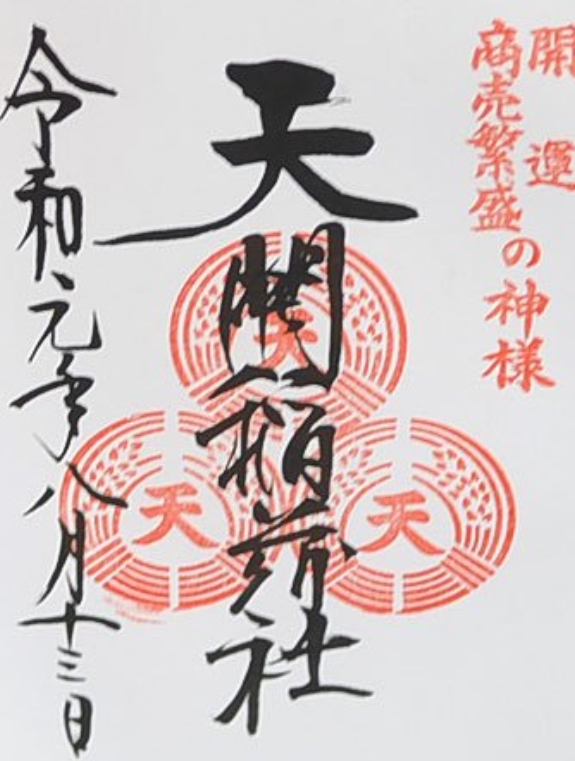 開運
商売繁盛
の神様
天開稲荷社
天
天
天
令和元年八月十三日